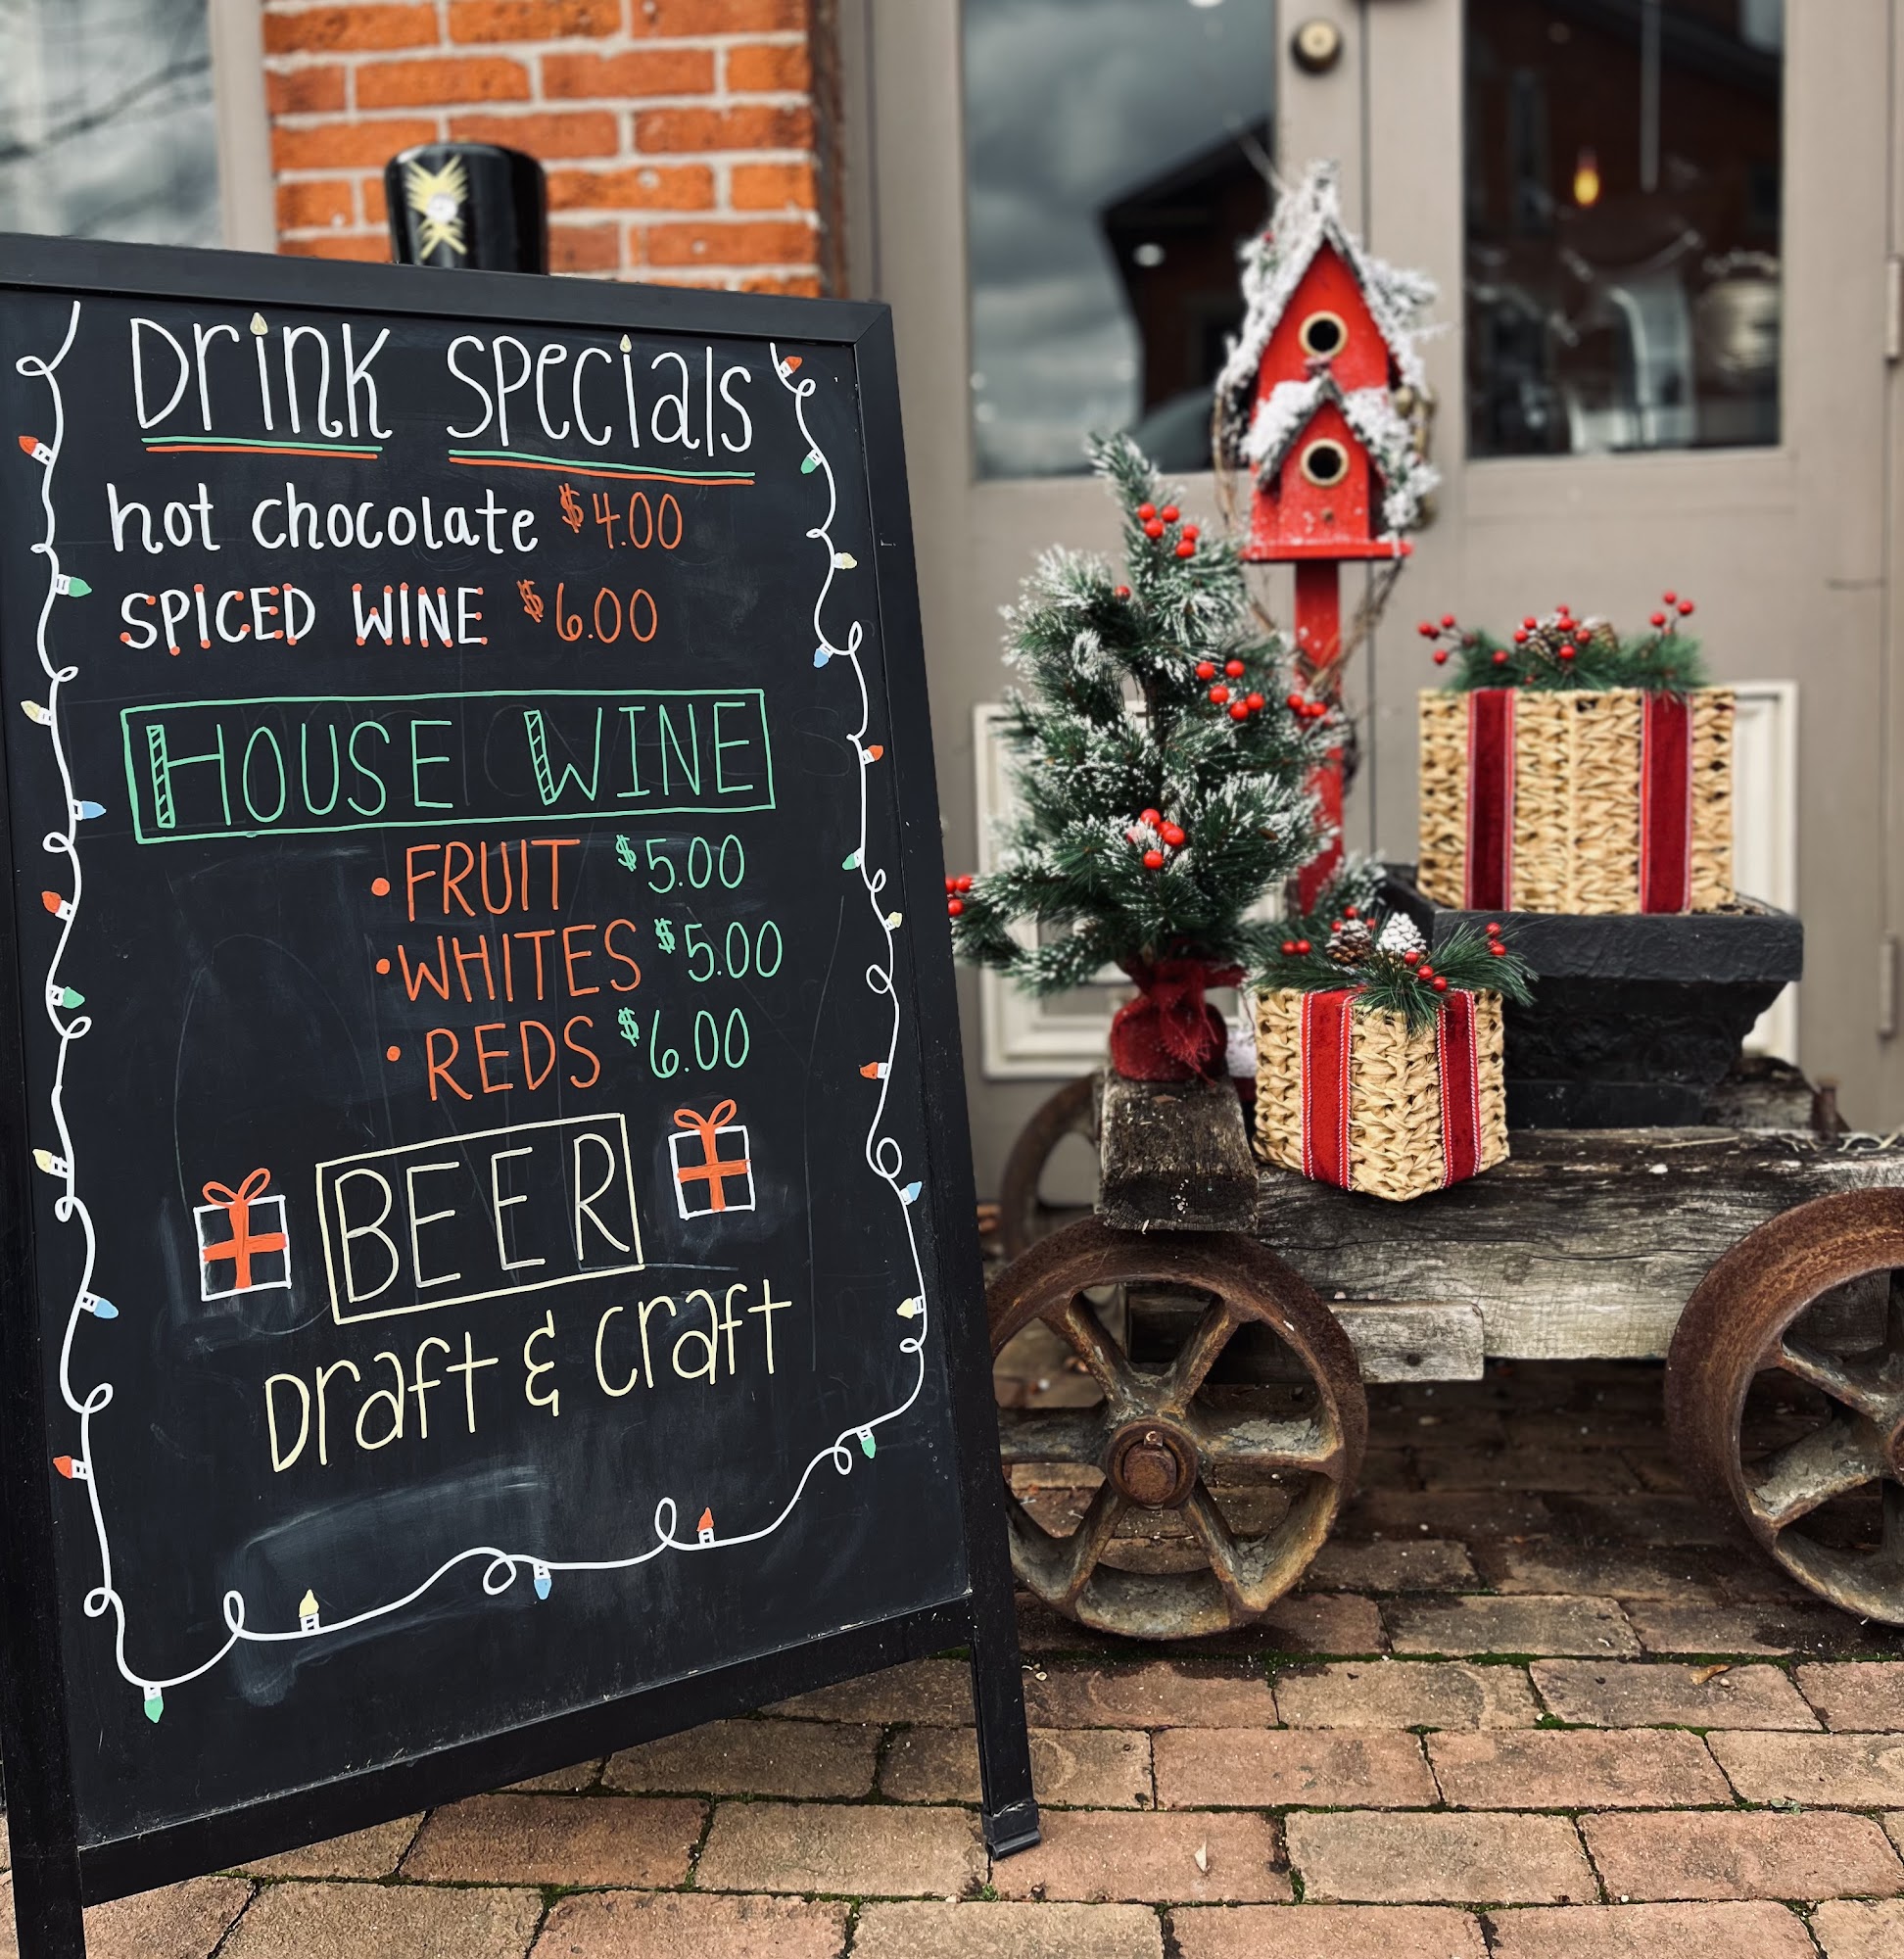 Drink Specials
hot chocolate $4.00
SPICED WINE $6.00
HOUSE WINE
• FRUIT $5.00
• WHITES $5.00
• REDS $6.00
BEER
Draft & Craft